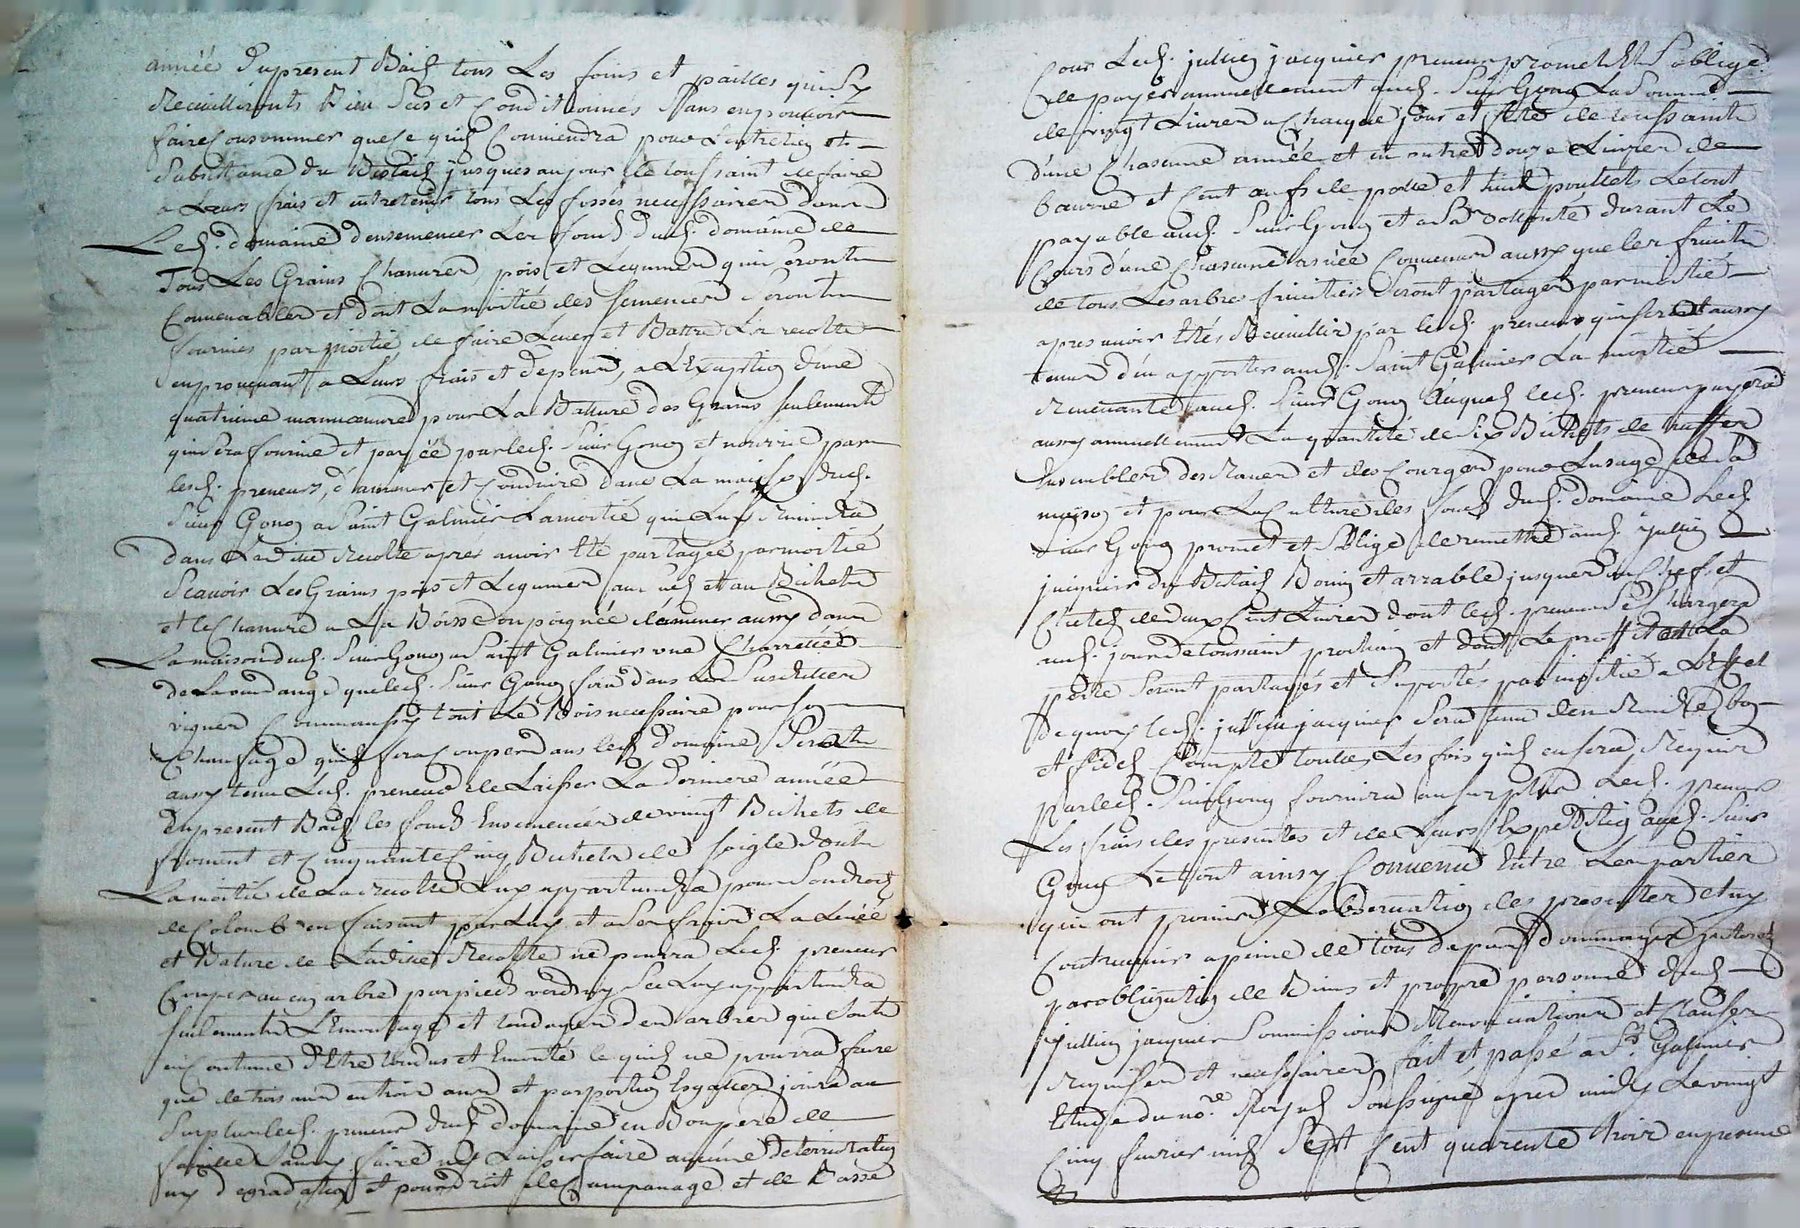 année du present Bail tous Les foins et pailles qui Sy
Recuillironts Bien Secs et Conditionnés Sans en pouvoir
faire Consommer que Ce quil Conviendra pour Lentretien et
Subsistance du Bestail jusques au jour de toussaint de faire
a Leurs frais et entretenir tous Les fossés necessaires dans
Led. domaine densemencer Les fonds dud. domaine de
Tous Les Grains Chanvres pois et Legumes qui Seront
Convenables et dont La moitié des Semences Seront
fournies par moitié de faire Lever et Battre La recolte
en provenant a Leurs frais et depens, a LExeption dune
quatrieme manœuvre pour La Batture des Grains Seulement
qui Sera fournie et payéé par led. Sieur Gonon et nourrie par
lesd. preneurs, damener et Conduire dans La maison dud.
Sieur Gonon a Saint Galmier La moitié qui Luy Reviendra
dans Ladite Recolte aprés avoir Eté partagée par moitié
Scavoir Les Grains pois et Legumes au Bichet
et le Chanvre a La Boisse ou poignée damener aussy dans
La maison dud. Sieur Gonon a Saint Galmier une Charretée
de La vendange que led. Sieur Gonon fera dans Les Susdites
vignes Comme aussy tout Le Bois necessaire pour Son
Chaufage quil fera Couper dans led. Domaine Sera
aussy tenu Led. preneur de Laisser La derniere année
du present Bail les fonds Ensemencés de vingt Bichets de
froment et Cinquante Cinq Bichets de Seigle dont
La moitié de La recolte Luy appartiendra pour Son droit
de Colomb en faisant par Luy et a Ses frais La Levée
et Bature de Ladite Recolte ne pourra Led. preneur
Couper aucun arbre par pied verd ny Sec Luy appartiendra
Seulement LEmontage et tondage des arbres qui Sont
en Coutume dEtre tondus et Emontés le quil ne pourra faire
que de trois ans en trois ans et par portion Esgalles jouira au
Surplus led. preneur dud. domaine en Bon pere de
famille Sans y faire ny Laisser faire aucune deterioration
ny degradation et pour droit de Companage et de Basse
Cour Led. jullien jacquier preneur promet et Soblige
de payer annuellement aud. Sieur Gonon La Somme
de vingt Livres a Chaque jour et fete de toussaint
dune Chascune année et en outre douze Livres de
beurre et Cent œufs de poule et huit poullets Le tout
payable aud. Sieur Gonon et a Sa volonté durant Le
Cours dune Chascune année Convenu aussy que les fruits
de tous Les arbres fruitiers Seront partagés par moitié
apres avoir Etés Recuillis par led. preneur qui Sera aussy
tenu den apporter aud. Saint Galmier La moitié
Revenante aud. Sieur Gonon Auquel led. preneur payera
aussy annuellement La quantité de Six Bichets de truffes
Ensembles des Raves et des Courges pour Lusage de La
maison et pour La Culture des fonds dud. domaine Led.
Sieur Gonon promet et Soblige de remettre aud. jullien
jacquier du Bestail Bovin et arrable jusques au Chef et
Chetel de deux Cent Livres dont led. preneur Se Chargera
aud. jour de toussaint prochain et dont Le proffit et La
perte Seront partagés et Suportés par moitié a LEffet
de quoy led. jullien jacquier Sera tenu den Rendre bon
et fidel Compte toutes Les fois quil en Sera Requis
par led. Sieur Gonon fournira au Surplus Led. preneur
Les frais des presentes et de Leurs Expedition aud. Sieur
Gonon Le tout ainsy Convenu Entre Les parties
qui ont promis Lobservation des presentes et ny
Contrevenir a peine de tous depens dommages interets
par obligation de Biens et propre personne dud.
jullien jacquier Soumissions Renonciations et Clauses
Requises et necessaires fait et passé a St. Galmier
Etude du nore. Royal Soussigné apres midy Le vingt
Cinq fevrier mil Sept Cent quarente trois en presence